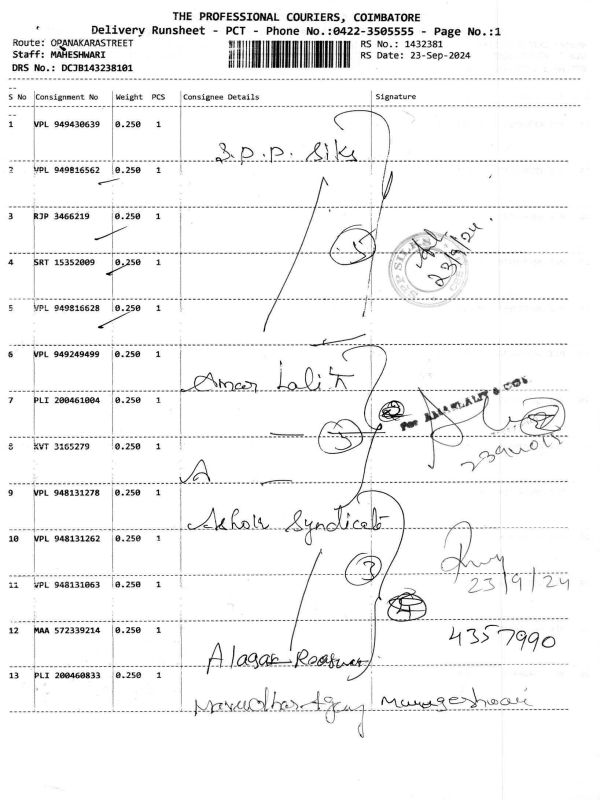 THE PROFESSIONAL COURIERS, COIMBATORE
Delivery Runsheet - PCT - Phone No.:0422-3505555 - Page No.:1
Route: OPANAKARASTREET RS No.: 1432381
Staff: MAHESHWARI RS Date: 23-Sep-2024
DRS No.: DCJB143238101
S No Consignment No Weight PCS Consignee Details Signature
1 VPL 949430639 0.250 1
S.P.P. Silks
2 VPL 949816562 0.250 1
3 RJP 3466219 0.250 1
5
23/9/24
4 SRT 15352009 0.250 1
5 VPL 949816628 0.250 1
6 VPL 949249499 0.250 1
Amar Lalit
7 PLI 200461004 0.250 1
For AMARLALIT & COS
8 KVT 3165279 0.250 1
3
A
9 VPL 948131278 0.250 1
Ashok Syndicate
10 VPL 948131262 0.250 1
3
11 VPL 948131063 0.250 1
23/9/24
12 MAA 572339214 0.250 1
4357990
Alagar
13 PLI 200460833 0.250 1